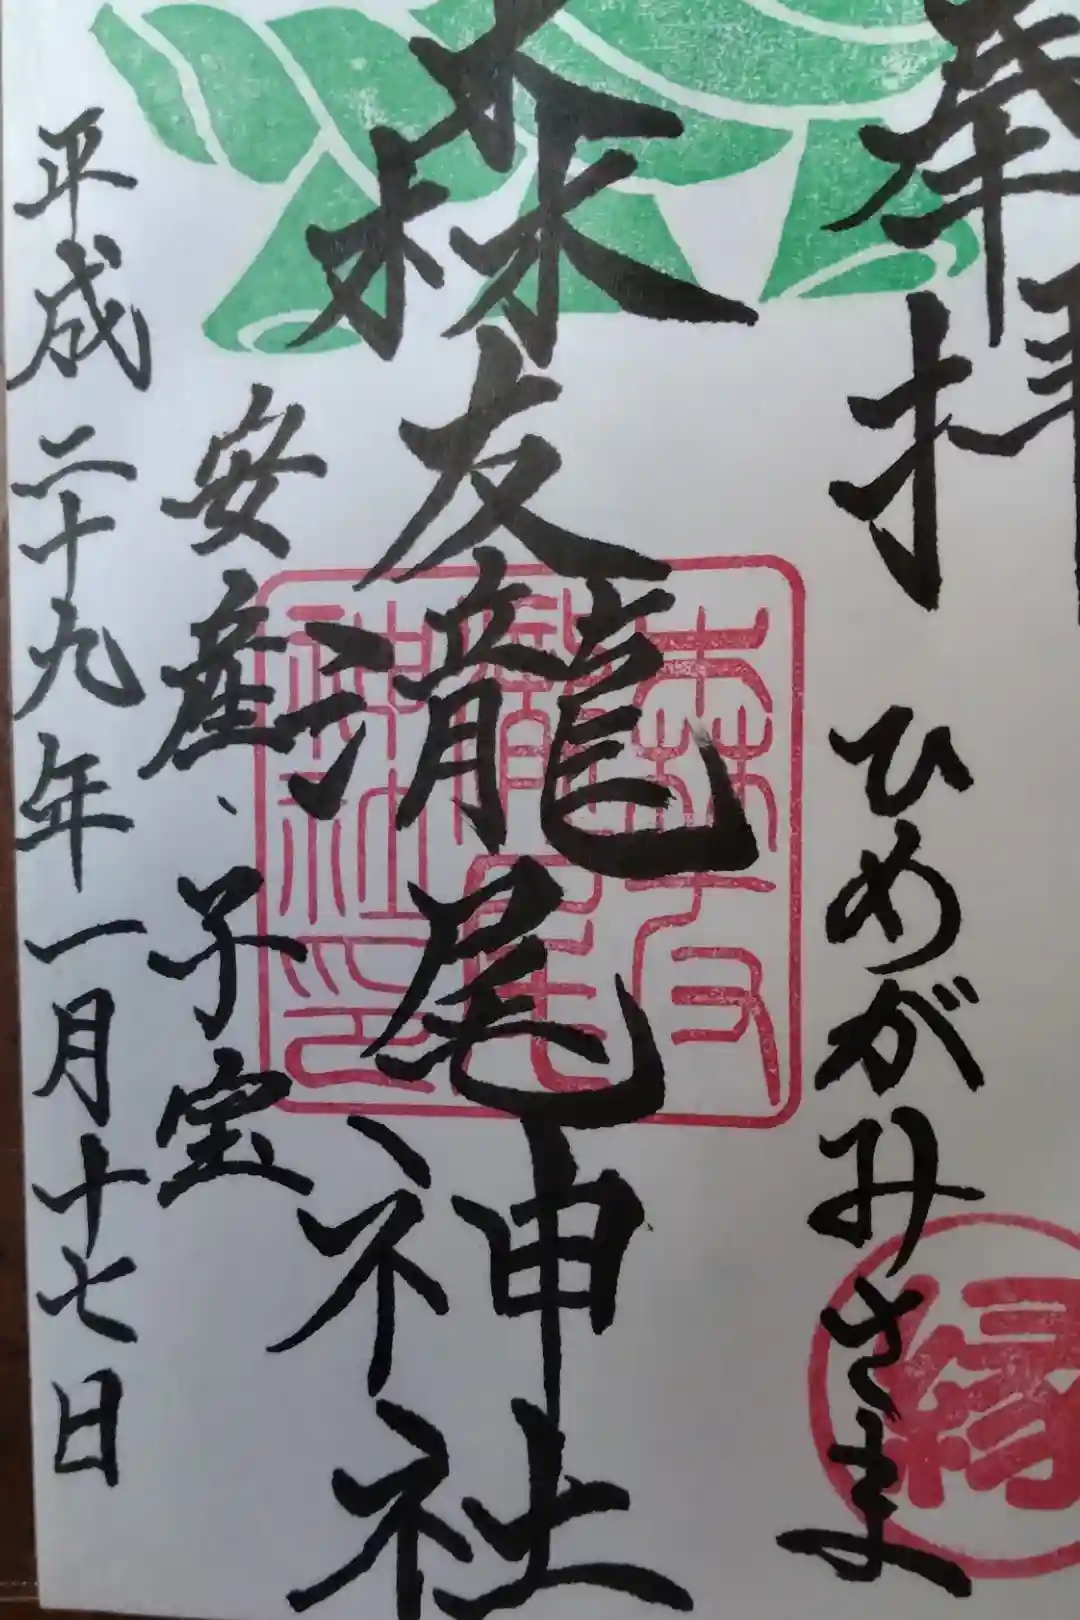 奉拝
ひめがみさま
縁
森友瀧尾神社
森友
瀧尾
神社印
安産、子宝
平成二十九年一月十七日